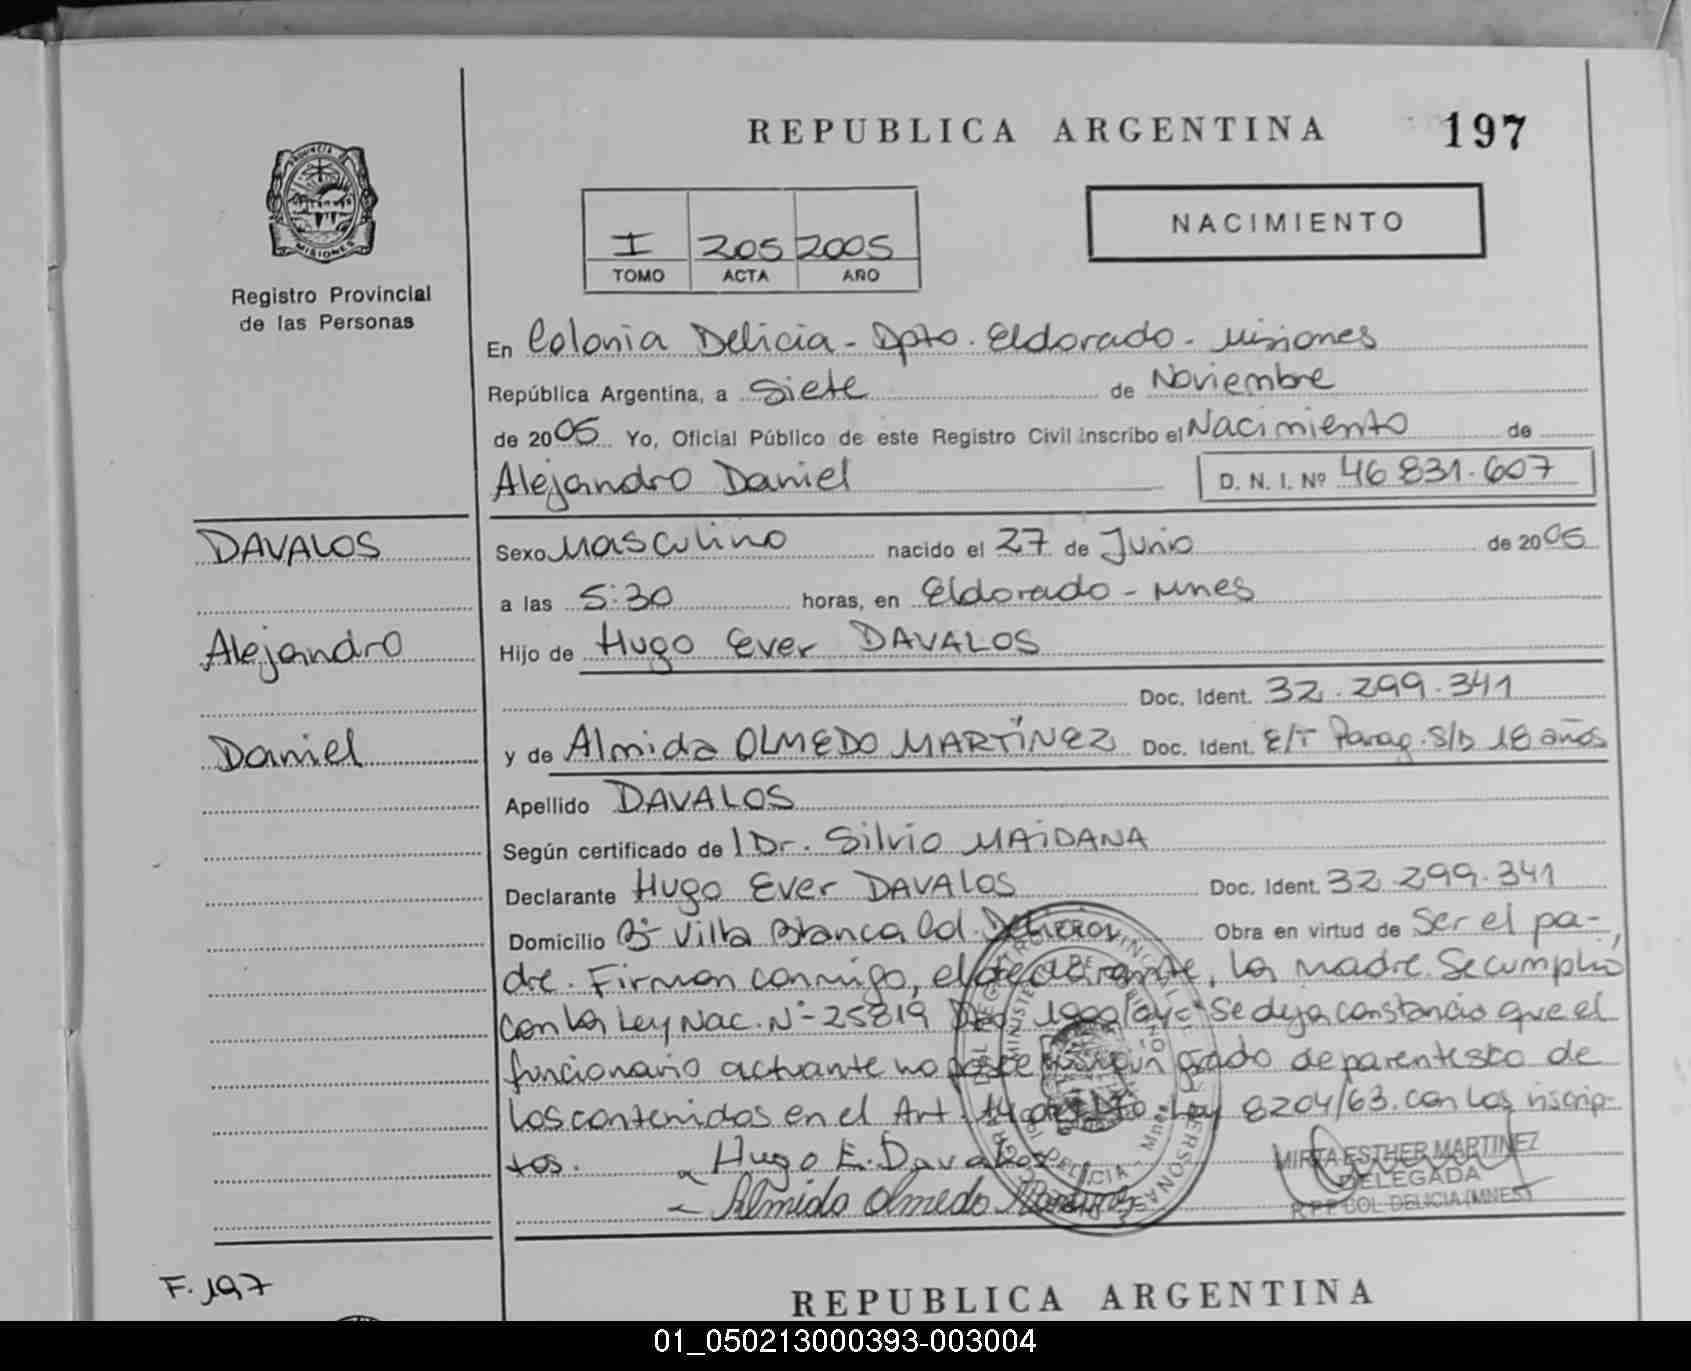 REPUBLICA ARGENTINA
197
PROVINCIA DE
MISIONES
Registro Provincial
de las Personas
I 205 2005
TOMO ACTA AÑO
NACIMIENTO
En Colonia Delicia - Dpto. Eldorado - Misiones
República Argentina, a Siete de Noviembre
de 2005 Yo, Oficial Público de este Registro Civil inscribo el Nacimiento de
Alejandro Daniel D. N. I. Nº 46 831.607
DAVALOS
Sexo Masculino nacido el 27 de Junio de 2005
a las 5:30 horas, en Eldorado - Mnes
Alejandro
Hijo de Hugo Ever DAVALOS
Doc. Ident. 32.299.341
Daniel
y de Almida OLMEDO MARTÍNEZ Doc. Ident. E/T Parag. S/D 18 años
Apellido DAVALOS
Según certificado de l Dr. Silvio MAIDANA
Declarante Hugo Ever DAVALOS Doc. Ident. 32.299.341
Domicilio Bº Villa Blanca Col. Delicia Obra en virtud de Ser el pa-
dre. Firman conmigo, el declarante, la madre. Se cumplio
con la Ley Nac. Nº 25819 Se deja constancia que el
funcionario actuante no posee ningun grado de parentesco de
los contenidos en el Art. 14 del Dto. Ley 8204/63. con los inscrip-
tos. Hugo E. Davalos
Almida Olmedo Martinez
MIRTA ESTHER MARTINEZ
DELEGADA
R.P.P. COL. DELICIA (MNES)
F. 197
REPUBLICA ARGENTINA
01_050213000393-003004